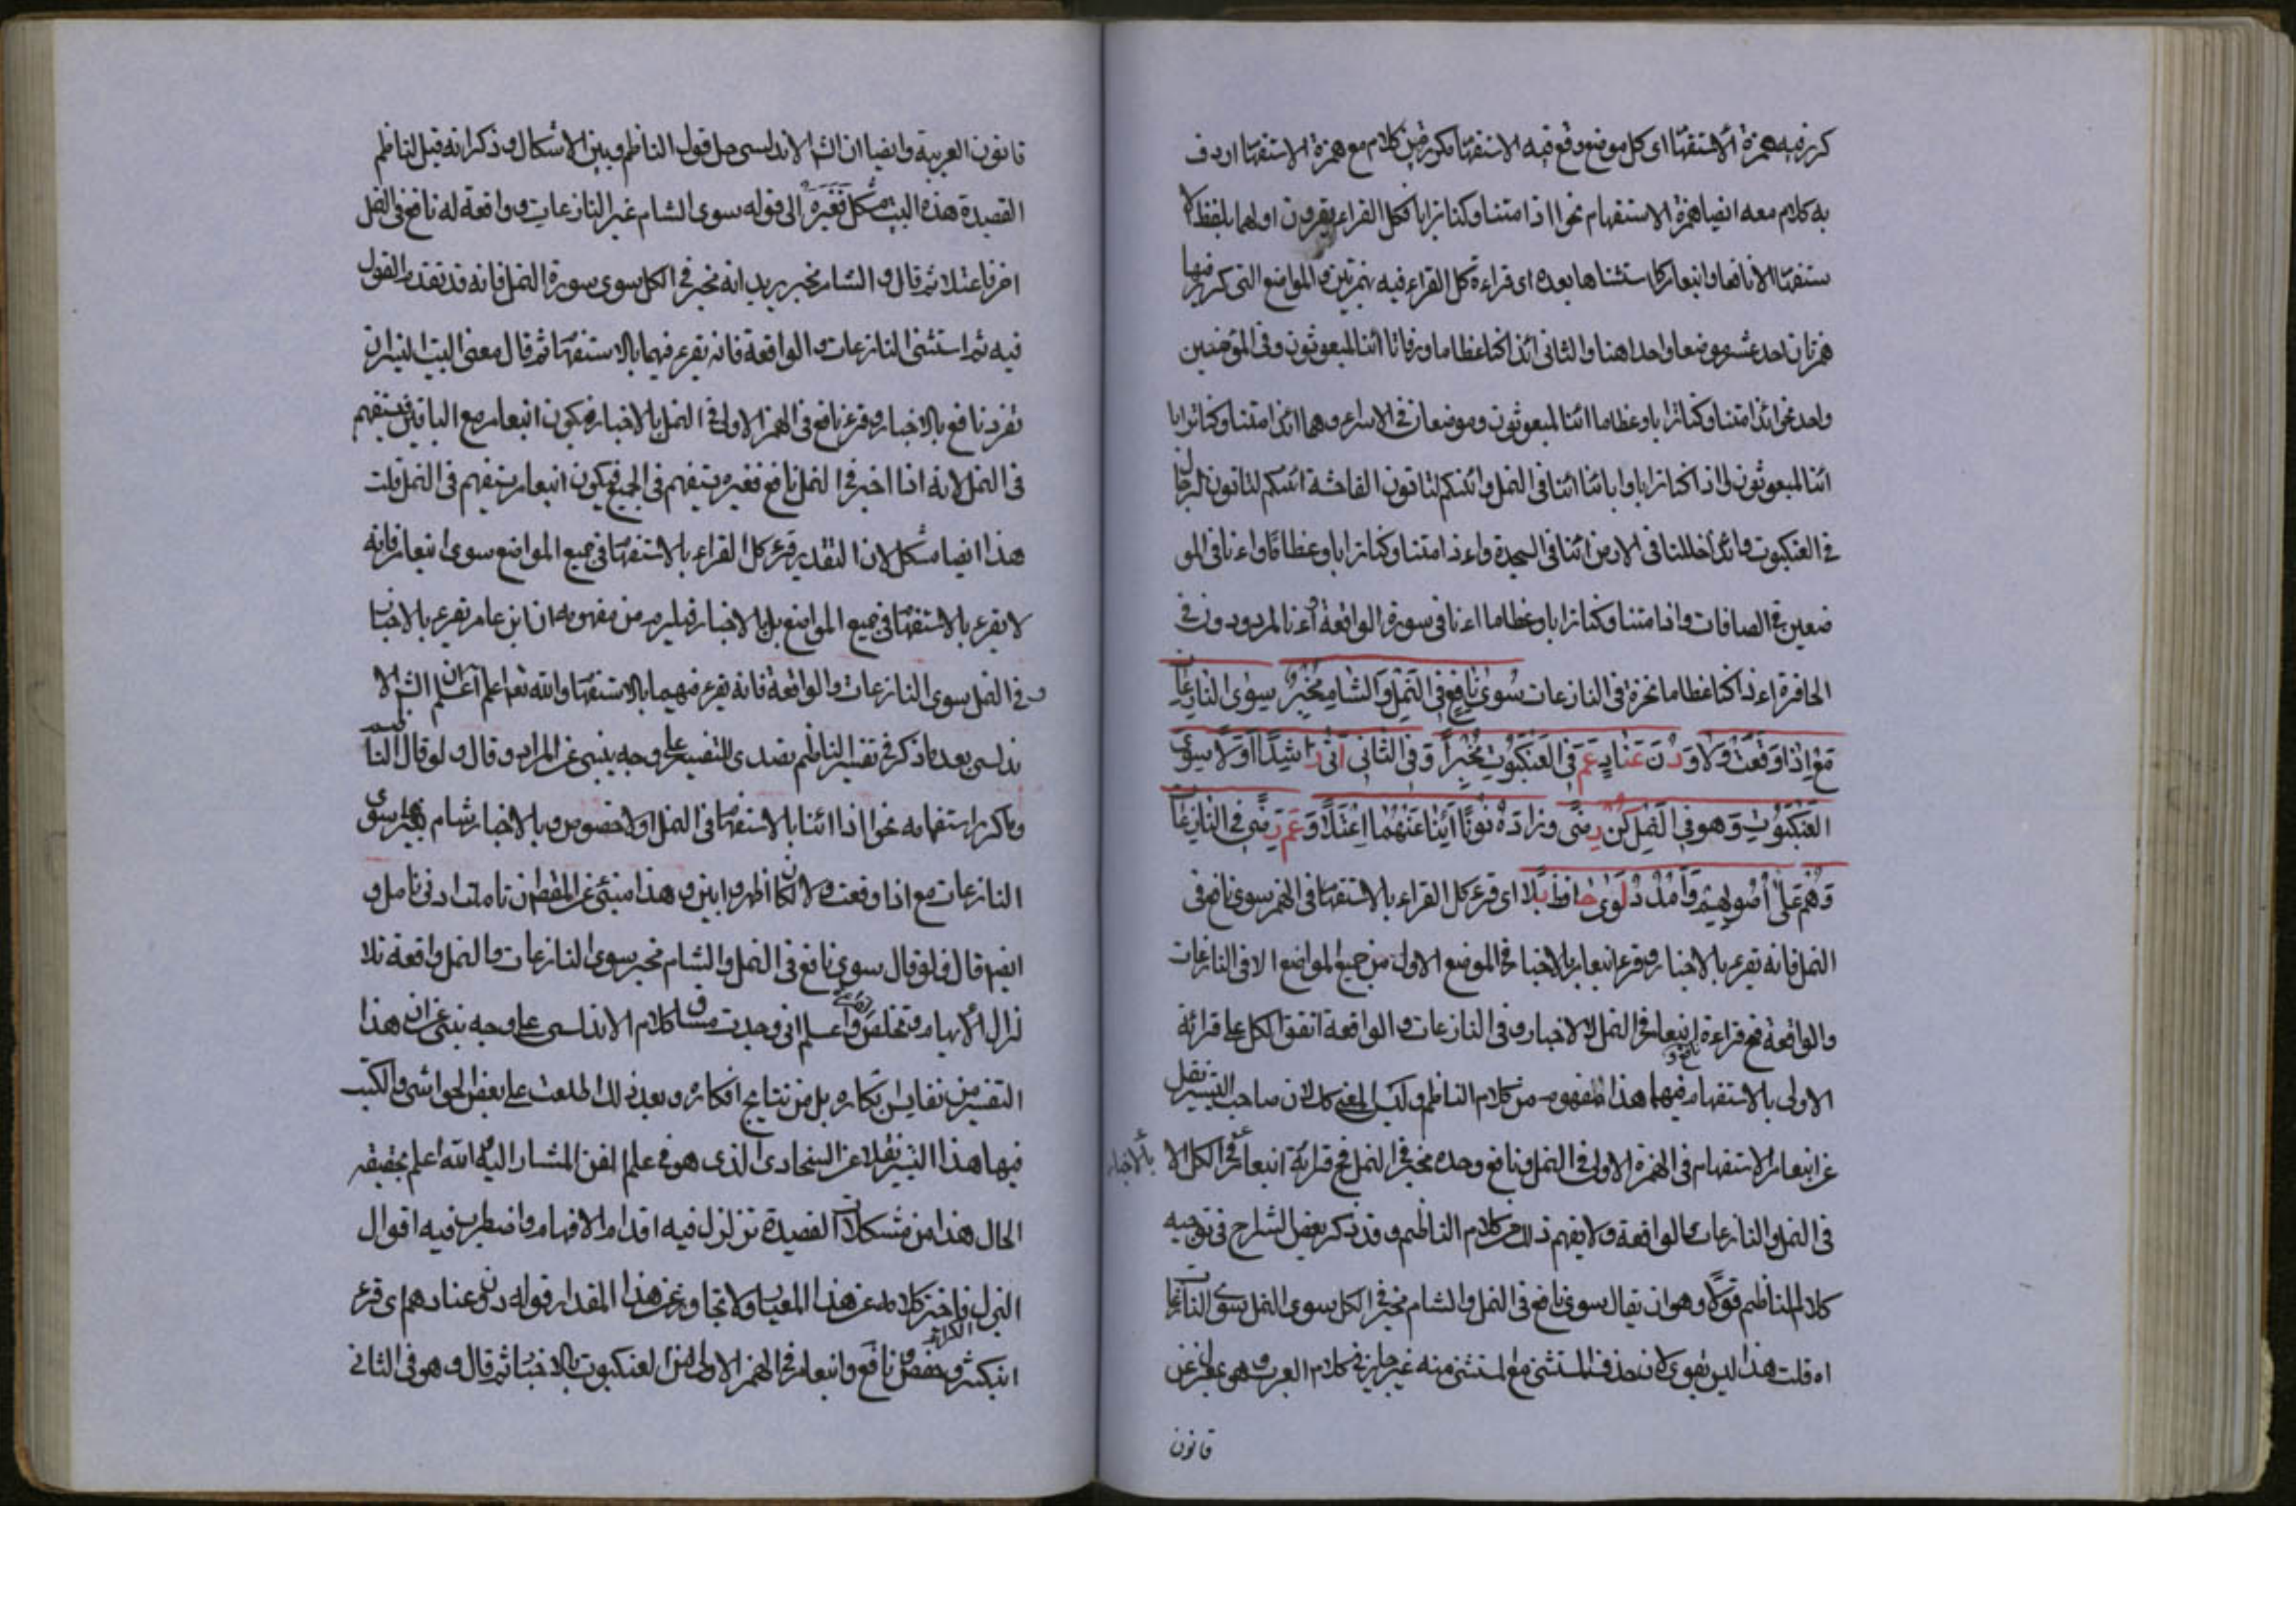 كرر فيه همزة الاستفها اى كل موضع وقع فيه الاستفها مكررفين كلام مع همزة الاستفها اردف
به كلام معه ايضا همزة الاستفهام نحو ااذا متنا وكنا ترابا فكل القراء يقرون اولهما بلفظ الا
ستفها الا نافعا وابنعامر كما ستثناها بعده اى قراءة كل القراء فيه بهمزتين والمواضع التى كرر فيها
همزتان احد عشر موضعا واحد اهنا والثانى ائذا كنا عظاما ورفاتا ائنا لمبعوثون وفى المؤمنين
واحد نحو ائذا متنا وكنا ترابا وعظاما ائنا لمبعوثون وموضعان فى الاسراء وهما ائذا متنا وكنا ترابا
ائنا لمبعوثون واذا كنا ترابا وابائنا ائنا فى النمل وائنكم لتاتون الفاحشة ائنكم لتاتون الرجال
فى العنكبوت وائذا ضللنا فى الارض ائنا فى السجدة واءذا متنا وكنا ترابا وعظاما واءنا فى المو
ضعين فى الصافات واذا متنا وكنا ترابا وعظاما اءنا فى سورة الواقعة أءنا لمردودون فى
الحافرة اءذا كنا عظاما نخرة فى النازعات سوى نافع فى النمل والشام مخبر سوى النازعات
مع اذا وقعت ولا ودن عناد عم فى العنكبوت مخبرا وفى الثانى اتى راشدا ولا سوى
العنكبوت وهو فى النمل كن رضى وزاده نونا اننا عنهما اعتلا وعم رضى فى النازعات
وهم على اصولهم وامدد لوى حافظ بلا اى قرء كل القراء بالاستفها فى الهمز سوى نافع فى
النمل فانه يقرء بالاخبار وقرء ابنعامر بالاخبا فى الموضع الاول من جميع المواضع الا فى النازعات
والواقعة فمع قراءة ابنعامر فى النمل بالاخبار وفى النازعات والواقعة اتفق الكل على قرائة
الاولى بالاستفهام فيهما هذا المفهوم من كلام الناظم وليس المعنى كك لان صاحب التيسير نقل
عن ابنعامر الاستفهام فى الهمزة الاولى فى النمل ونافع وحده مخبر فى النمل فمع قرائة ابنعامر فى الكل الا بالاخبار
فى النمل والنازعات والواقعة ولا يفهم ذلك من كلام الناظم وقد ذكر بعض الشارح فى توجيه
كلام الناظم قولا وهو ان يقال سوى نافع فى النمل والشام مخبر فى الكل سوى النمل سوى النازعات
اه قلت هذا ليس بقوى لان حذف المستثنى مع المستثنى منه غير جايز فى كلام العرب وهو عن
قانون
قانون العربية وايضا ان الش الاندلسى حل قول الناظم وبين الاشكال وذكر انه قيل لناظم
القصيدة هذه البيت مشكل فغيره الى قوله سوى الشام غير النازعات وواقعة له نافع فى النمل
اخبر فاعتلا ثم قال والشام مخبر يريد انه مخبر فى الكل سوى سورة النمل فانه قد تقدم القول
فيه ثم استثنى النازعات والواقعة فانه يقرء فيهما بالاستفها ثم قال معنى البيت ان
تفرد نافع بالاخبار وقرء نافع فى الهمز الاولى فى النمل بالاخبار فيكون ابنعامر مع الباقين يستفهم
فى النمل لانه اذا اخبر فى النمل نافع فغيره يستفهم فى الجميع فيكون ابنعامر يستفهم فى النمل قلت
هذا ايضا مشكل لان التقدير قرء كل القراء بالاستفها فى جميع المواضع سوى ابنعامر فانه
لا يقرء بالاستفها فى جميع المواضع بل بالاخبار فيلزم من مفهومه ان ابن عامر يقرء بالاخبار
فى النمل سوى النازعات والواقعة فانه يقرء فيهما بالاستفها والله تعا اعلم اعلم ان الش الا
ندلسى بعد ما ذكر فى تفسير الناظم تصدى للتفسير على وجه ينبىء عن المراد وقال ولو قال الناظم
وما كرر استفهامه نحو ااذا ائنا بالاستفها فى النمل اولا خصوص وبالاخبار شام بغير سوى
النازعات مع اذا وقعت ولا لكان اظهر وابين وهذا منبئ عن المقط ان تاملت ادنى تامل و
ايضا قال فلو قال سوى نافع فى النمل والشام مخبر سوى النازعات والنمل واقعة تلا
لزال الابهام وتخلص واعلم انى وجدت مساق كلام الاندلسى على وجه ينبىء عن ان هذا
التفسير من نفايس ابكاره بل من نتايج افكاره وبعد ذلك اطلعت على بعض الحواشى والكتب
فيها هذا التفسير نقلا عن السخاوى الذى هو فى علم الفن المشار اليه والله اعلم بحقيقة
الحال هذا من مشكلات القصيدة تزلزل فيه اقدام الافهام واضطرب فيه اقوال
كلامه عن هذا المعيار ولا تجاوز عن هذا المقدار قوله دن وعناد عم اى قرء
ابنكثير وحفص ونافع وابنعامر فى الهمز الاولى من العنكبوت بالاخبا ثم قال وهو فى الثانى